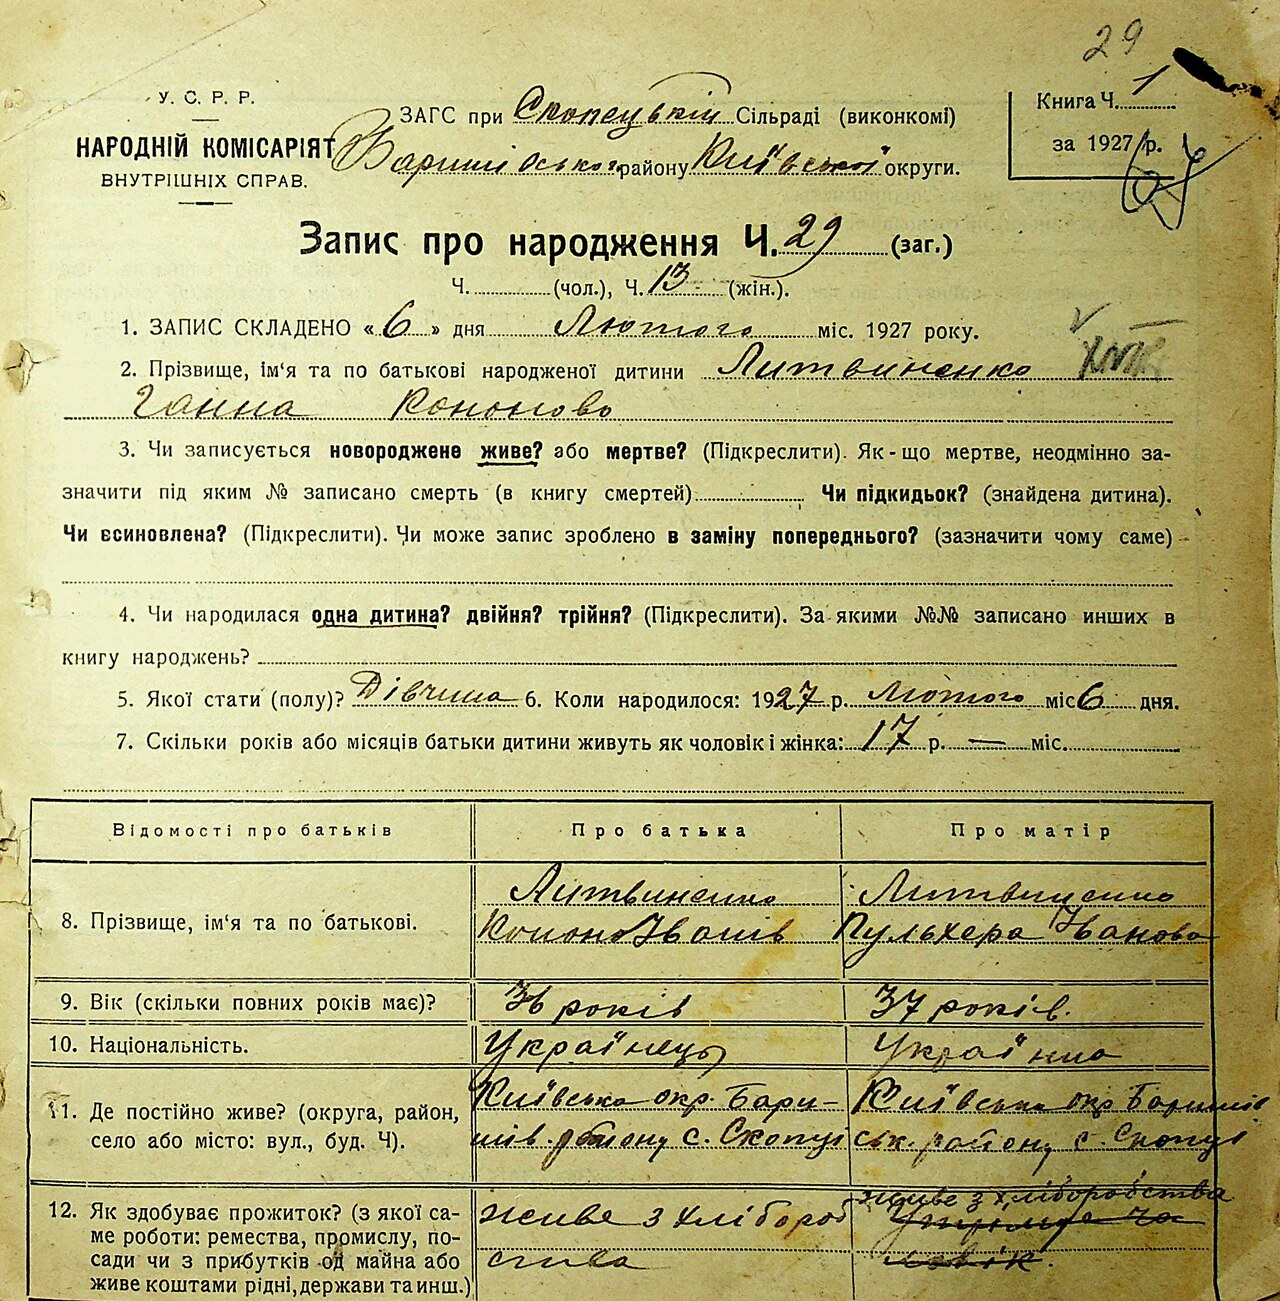 29
У. С. Р. Р.
НАРОДНІЙ КОМІСАРІЯТ
ВНУТРІШНІХ СПРАВ.
ЗАГС при Скопецькій Сільраді (виконкомі)
Баришівського району Київської округи.
Книга Ч. 1
за 1927 р.
Запис про народження Ч. 29 (заг.)
Ч. (чол.), Ч. 13 (жін.).
1. ЗАПИС СКЛАДЕНО «6» дня Лютого міс. 1927 року.
2. Прізвище, ім'я та по батькові народженої дитини Литвиненко
Ганна Кононово
3. Чи записується новороджене живе? або мертве? (Підкреслити). Як-що мертве, неодмінно за-
значити під яким № записано смерть (в книгу смертей) Чи підкидьок? (знайдена дитина).
Чи всиновлена? (Підкреслити). Чи може запис зроблено в заміну попереднього? (зазначити чому саме)
4. Чи народилася одна дитина? двійня? трійня? (Підкреслити). За якими №№ записано инших в
книгу народжень?
5. Якої стати (полу)? Дівчина 6. Коли народилося: 1927 р. Лютого міс 6 дня.
7. Скільки років або місяців батьки дитини живуть як чоловік і жінка: 17 р. — міс.
Відомості про батьків Про батька Про матір
8. Прізвище, ім'я та по батькові.
Литвиненко
Конон Іванів
Литвиненко
Пульхера Іванова
9. Вік (скільки повних років має)? 36 років 37 років.
10. Національність. Українець Українка
11. Де постійно живе? (округа, район,
село або місто: вул., буд. Ч).
Київська окр. Бари-
шів. району с. Скопці
Київська окр Баришів
ськ. району с. Скопці
12. Як здобуває прожиток? (з якої са-
ме роботи: ремества, промислу, по-
сади чи з прибутків од майна або
живе коштами рідні, держави та инш.)
живе з хлібороб
ства
живе з хліборобства